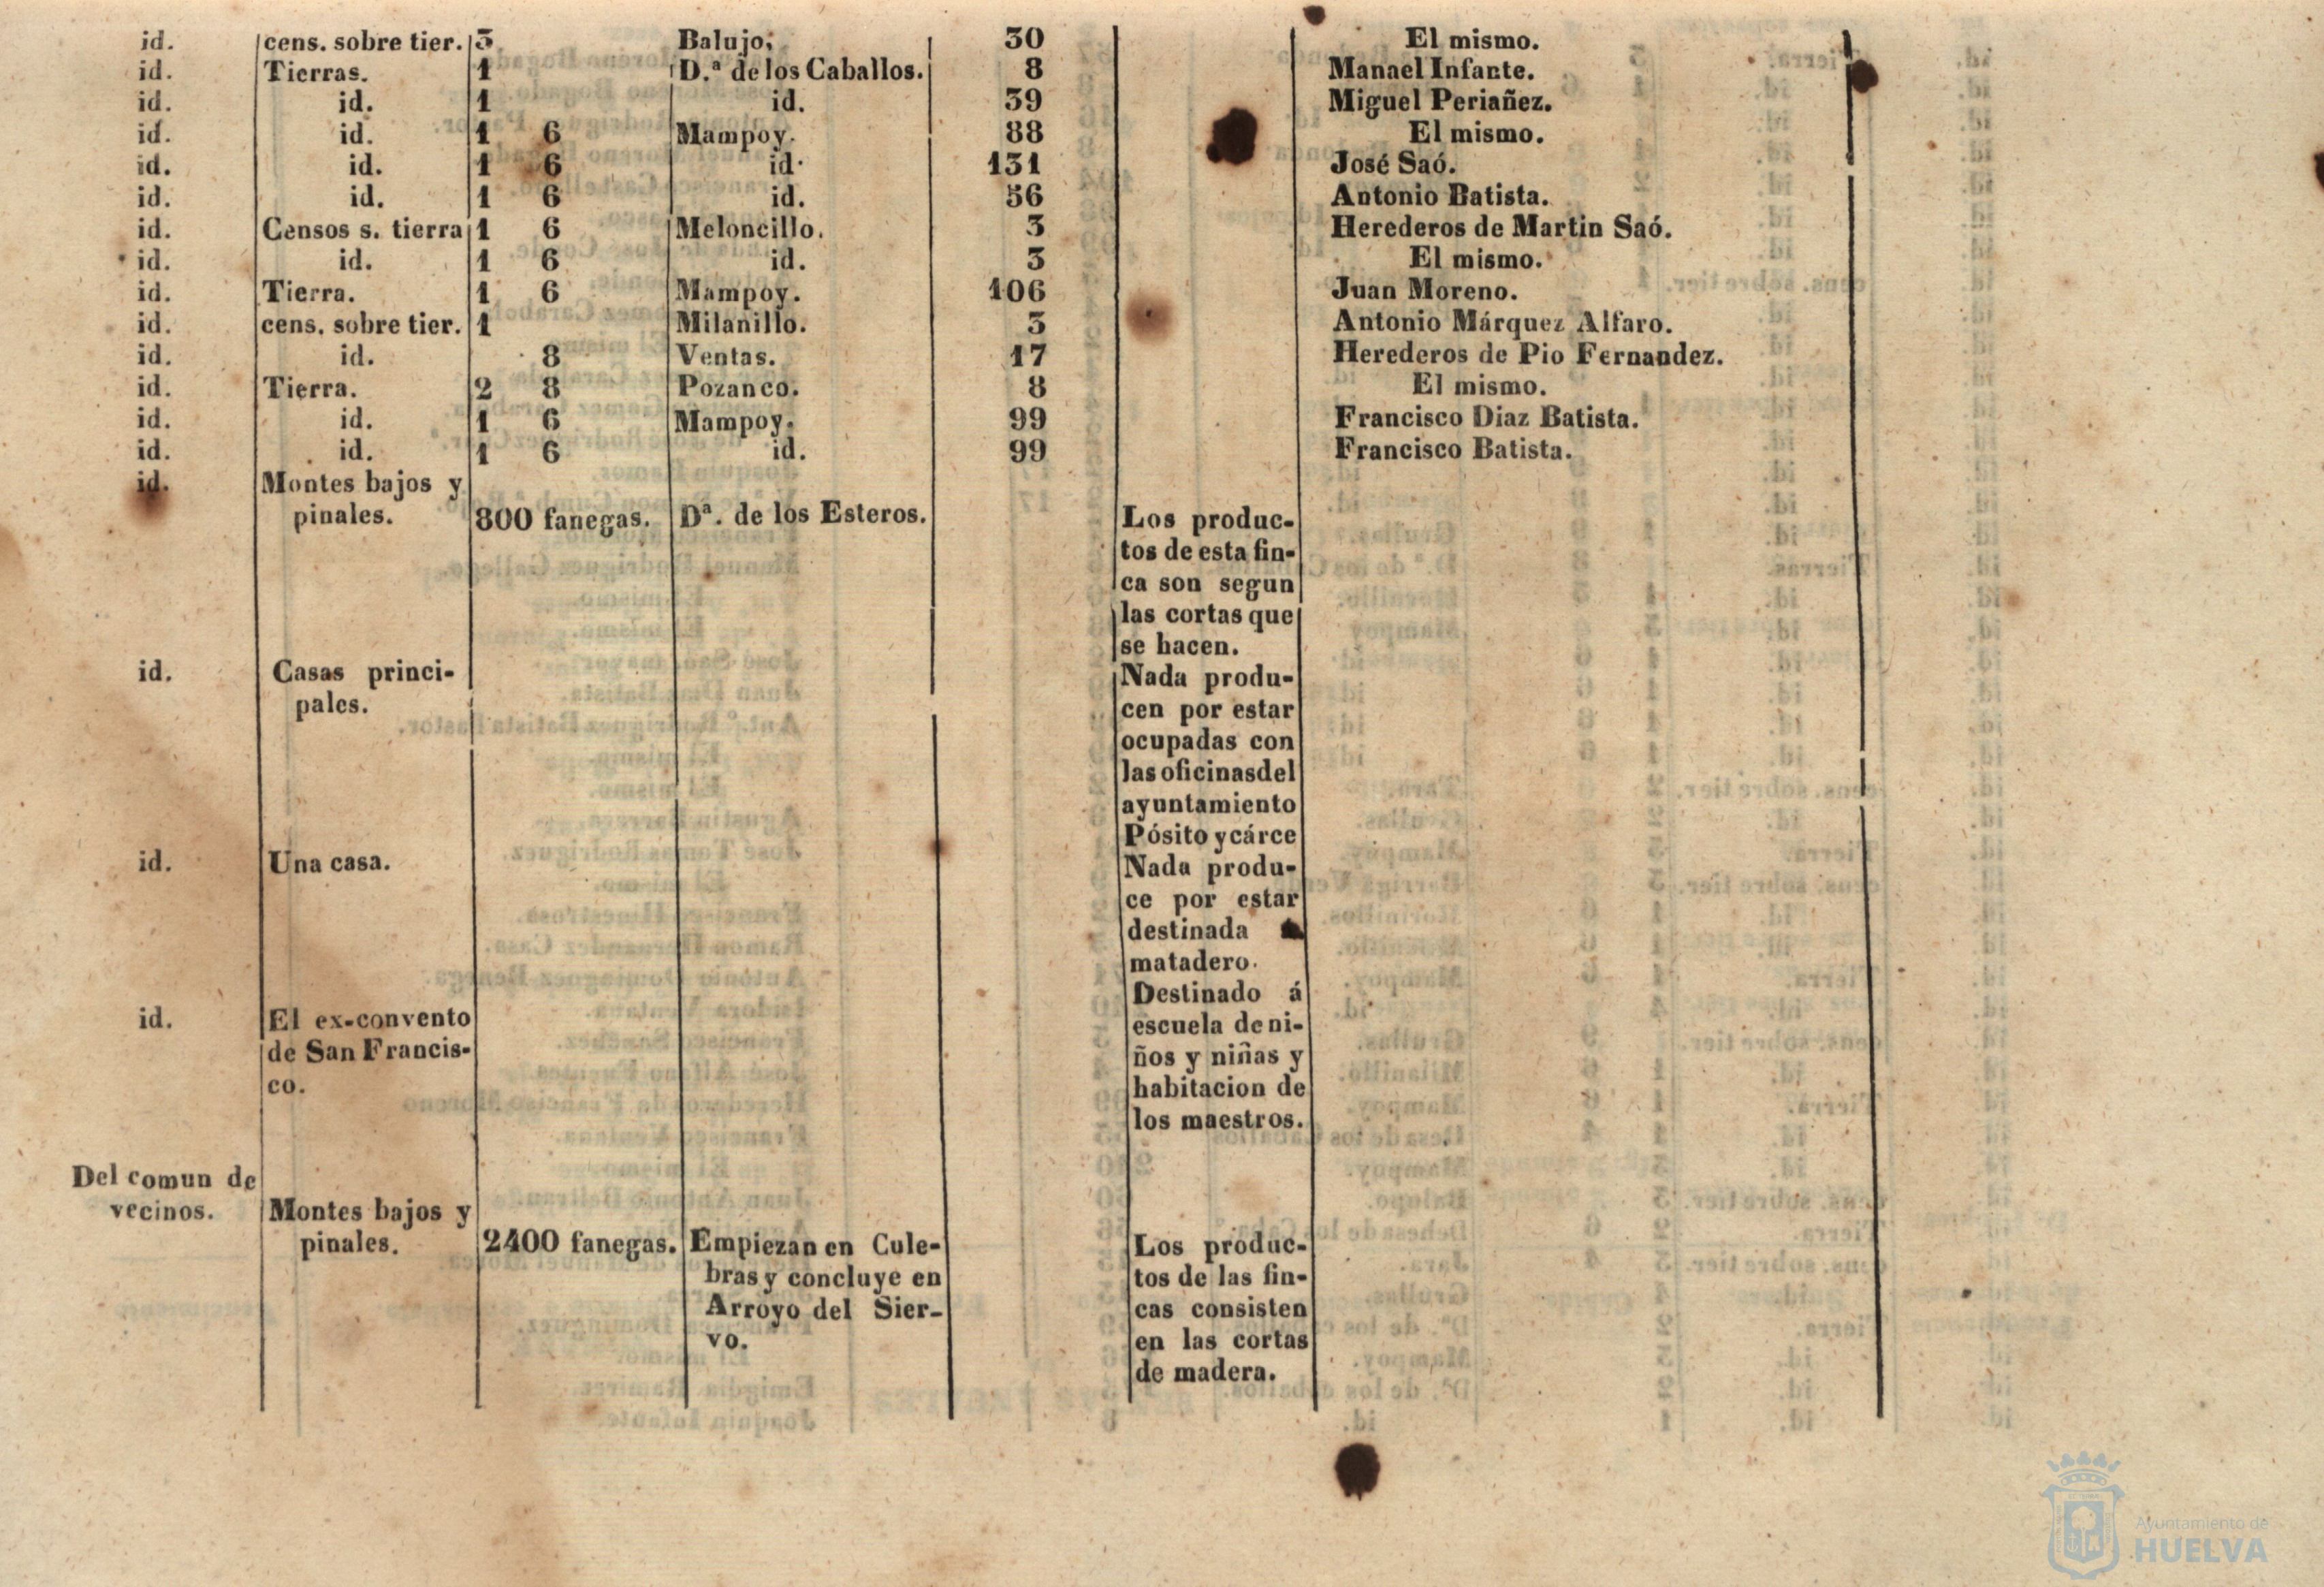 id. cens. sobre tier. 3 Balujo. 30 El mismo.
id. Tierras. 1 D.ª de los Caballos. 8 Manael Infante.
id. id. 1 id. 39 Miguel Periañez.
id. id. 1 6 Mampoy. 88 El mismo.
id. id. 1 6 id. 131 José Saó.
id. id. 1 6 id. 56 Antonio Batista.
id. Censos s. tierra 1 6 Meloncillo. 3 Herederos de Martin Saó.
id. id. 1 6 id. 3 El mismo.
id. Tierra. 1 6 Mampoy. 106 Juan Moreno.
id. cens. sobre tier. 1 Milanillo. 3 Antonio Márquez Alfaro.
id. id. 8 Ventas. 17 Herederos de Pio Fernandez.
id. Tierra. 2 8 Pozanco. 8 El mismo.
id. id. 1 6 Mampoy. 99 Francisco Diaz Batista.
id. id. 1 6 id. 99 Francisco Batista.
id. Montes bajos y
pinales. 800 fanegas. Dª. de los Esteros. Los produc-
tos de esta fin-
ca son segun
las cortas que
se hacen.
id. Casas princi- Nada produ-
pales. cen por estar
ocupadas con
las oficinas del
ayuntamiento
Pósito y cárce
id. Una casa. Nada produ-
ce por estar
destinada
matadero.
Destinado á
id. El ex-convento escuela de ni-
de San Francis- ños y niñas y
co. habitacion de
los maestros.
Del comun de
vecinos. Montes bajos y
pinales. 2400 fanegas. Empiezan en Cule- Los produc-
bras y concluye en tos de las fin-
Arroyo del Sier- cas consisten
vo. en las cortas
de madera.
Ayuntamiento de
HUELVA